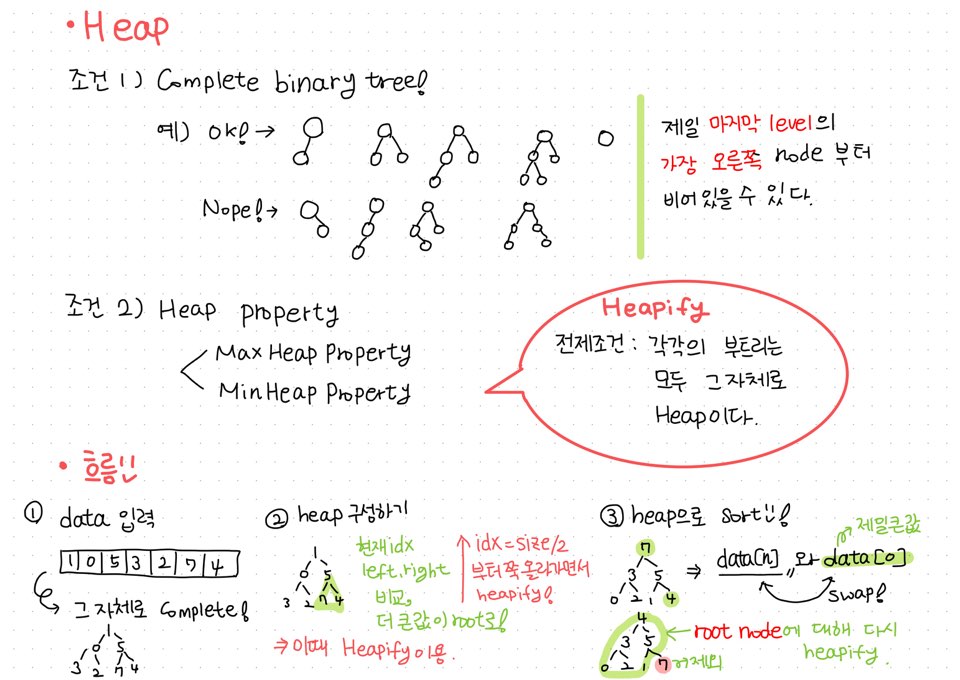 • Heap
조건 1) Complete binary tree!
예) ok! →
Nope! →
제일 마지막 level의
가장 오른쪽 node 부터
비어있을 수 있다.
조건 2) Heap property
Max Heap Property
Min Heap Property
Heapify
전제조건 : 각각의 부트리는
모두 그 자체로
Heap이다.
• 흐름!!
① data 입력
1 0 5 3 2 7 4
그 자체로 Complete!
1
0 5
3 2 7 4
② heap 구성하기
1
0 5
3 2 7 4
현재 idx
left, right
비교,
더 큰 값이 root로!
idx = size/2
부터 쭉 올라가면서
heapify!
⇒ 이때 Heapify 이용.
③ heap으로 sort!!
7
3 5
0 2 1 4
⇒ data[n] 와 data[0]
제일 큰 값
swap!
4
3 5
0 2 1 7
제외
← root node에 대해 다시
heapify.